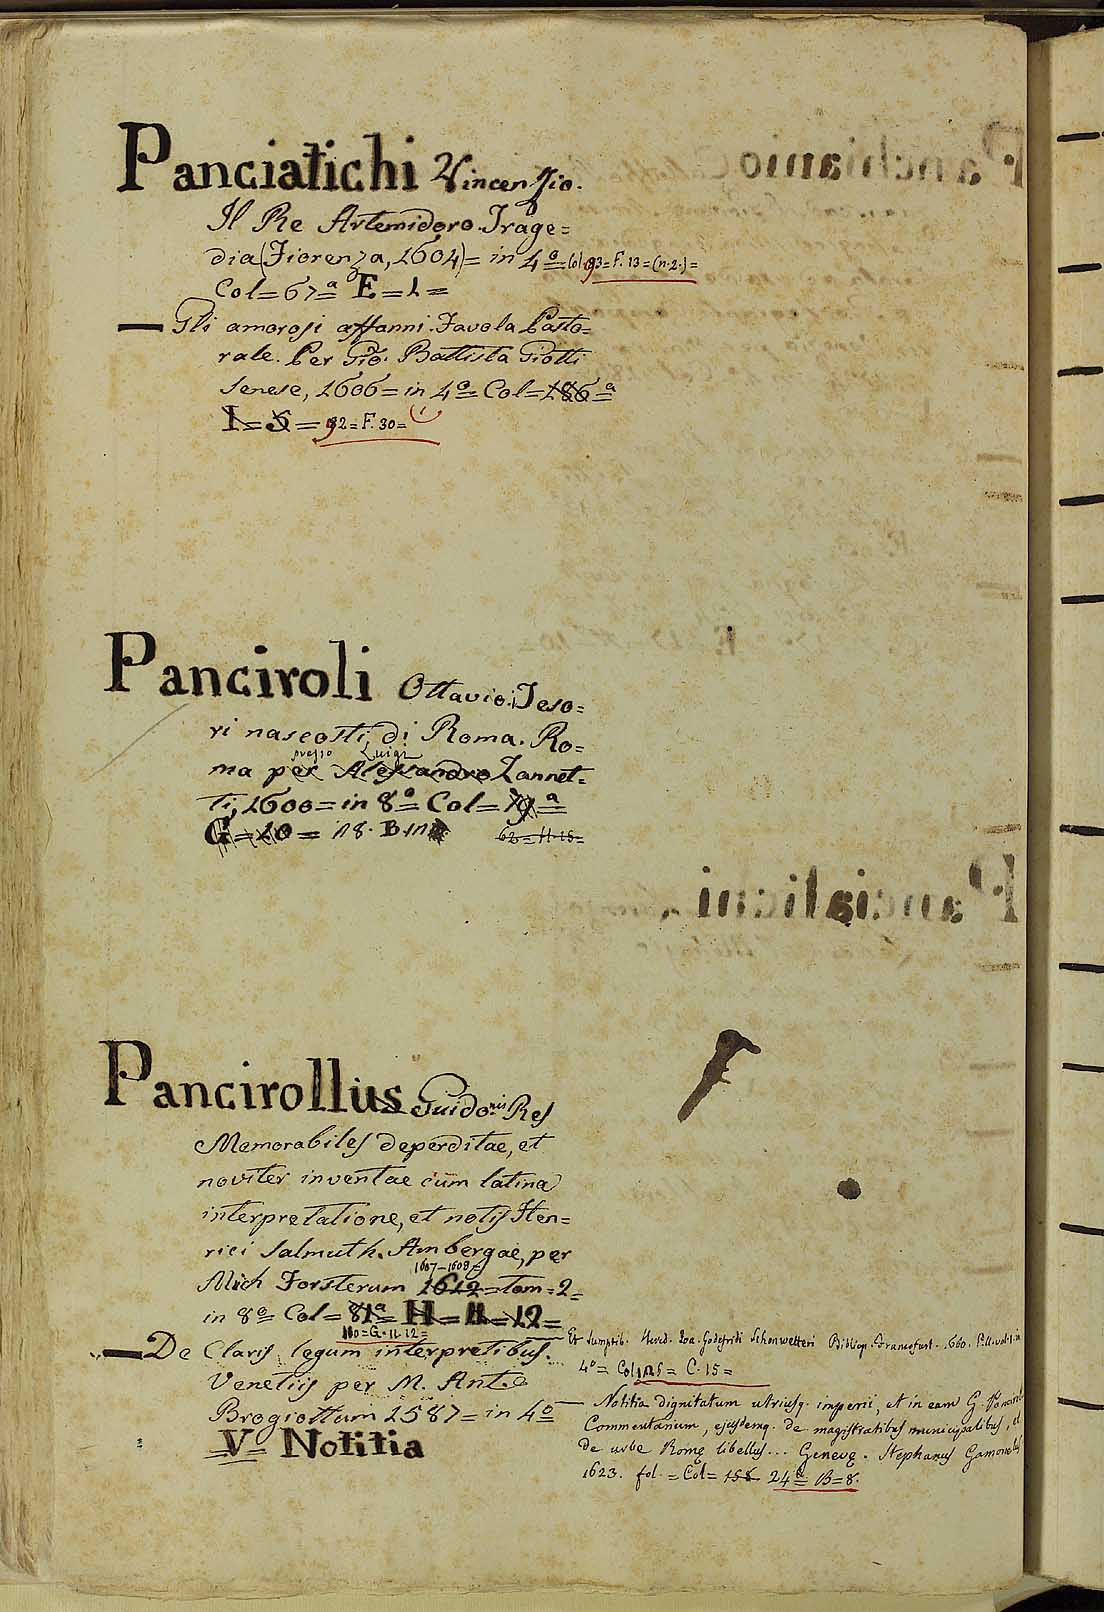 Panciatichi Vincenzio.
Il Re Artemidoro. Trage=
dia (Fiorenza, 1604) = in 4º = 93 = F. 13 = (n. 2.) =
Col = 67ª E = 1 =
— Gli amorosi affanni. Favola Pasto=
rale. Per Gio. Battista Giotti
Senese, 1606 = in 4º = Col = 186ª =
I = 5 = 92 = F. 30 =
Panciroli Ottavio. Teso=
ri nascosti di Roma. Ro=
presso Luigi
ma per Alessandro Zannet=
ti, 1600 = in 8º = Col = 19ª =
G = 20 = 18. B.
62 = H. 15 =
Pancirollus Guido.nis Res
Memorabiles deperditae, et
noviter inventae cum latina
interpretatione, et notis Hen=
rici Salmuth. Ambergae, per
1607 – 1608
Mich Forsterum 1612 = Tom = 2 =
in 8º = Col = 81ª = H = 11 = 12 =
110 = G. 11. 12 =
— De Claris legum interpretibus.
Venetiis per M. Ant.
Brogiottum 1587 = in 4º =
V = Notitia
Et sumptib. Hered. Joa. Godefridi Schonwetteri Bibliop. Francofurt. 1660. P. II. vol. 1. in
4º = Col 125 = C. 15 =
— Notitia dignitatum utriusq. imperii, et in eam G. Panciroli
Commentarium, ejusdemq. de magistratibus municipalibus, et
de urbe Romę libellus... Genevę. Stephanus Gamonetus
1623. fol. = Col = 158 24ª = B = 8.